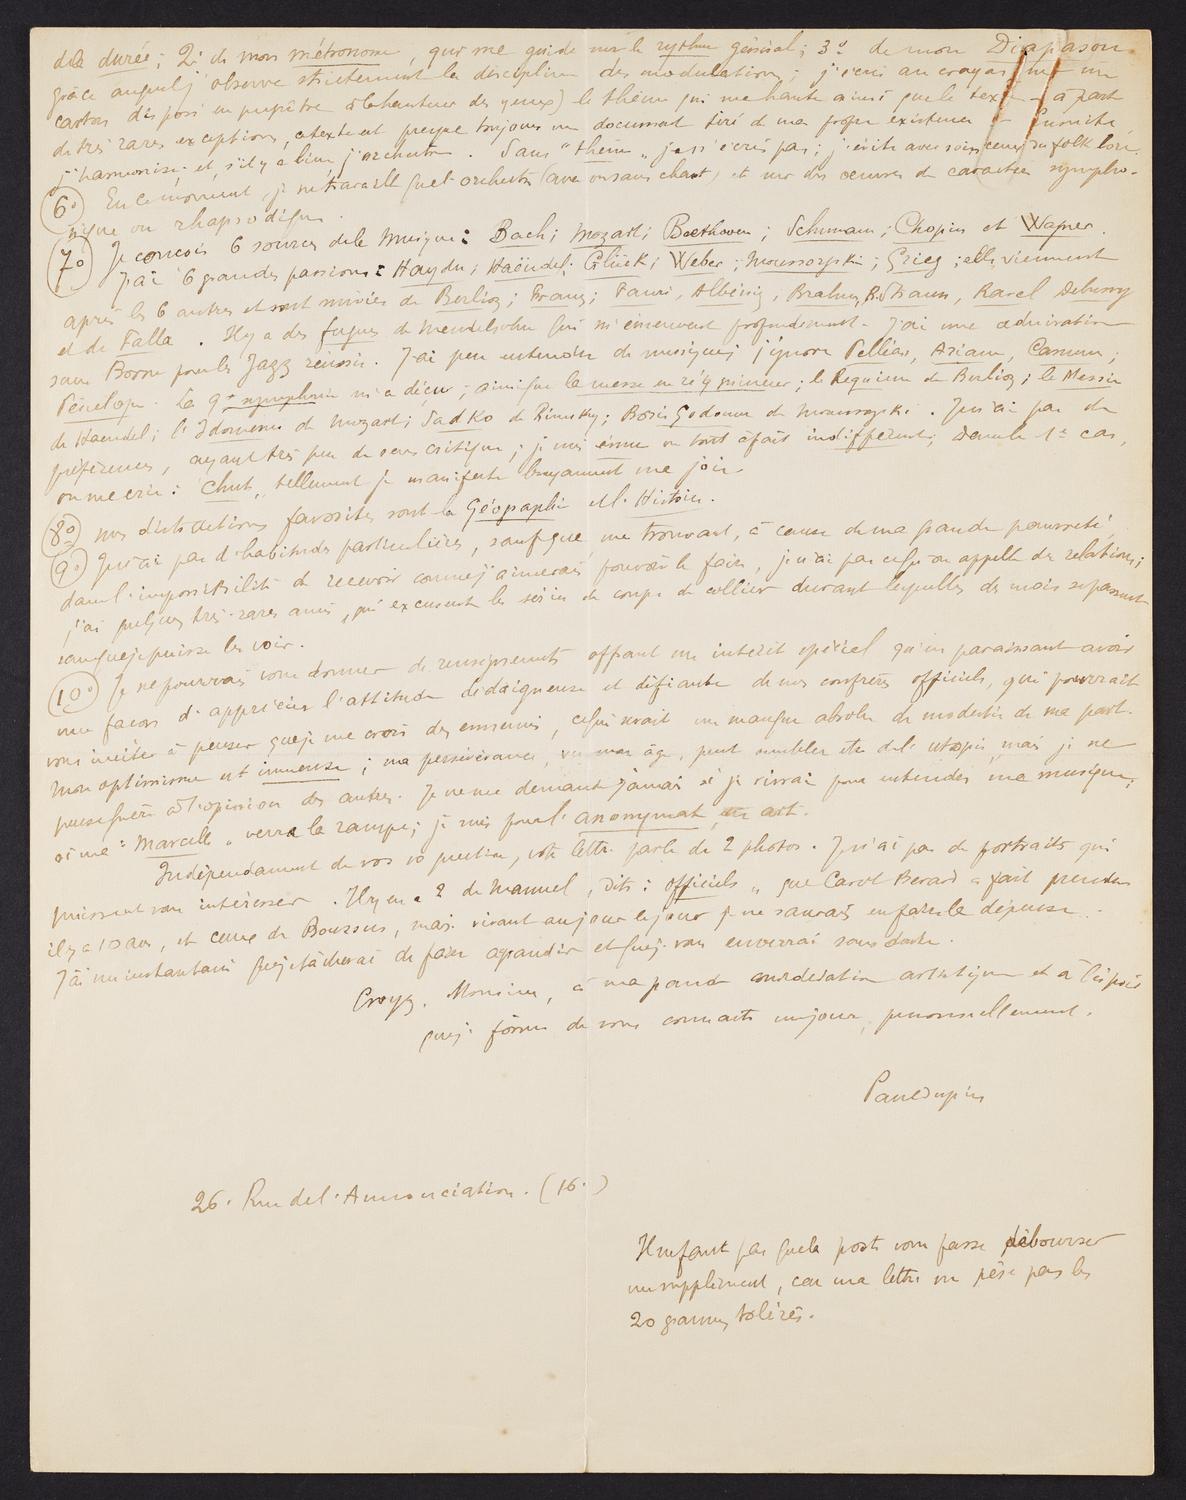 de la durée; 2º de mon métronome, qui me guide sur le rythme général; 3º de mon Diapason
grâce auquel j'observe strictement la discipline des modulations; j'écris au crayon, sur un
carton disposé en pupitre à la hauteur des yeux) le thème qui me hante ainsi que le texte - à part
de très rares exceptions, ce texte est presque toujours un document tiré de ma propre existence - Ensuite
j'harmonise et, s'il y a lieu j'orchestre. Sans "thème" je n'écris pas; j'évite avec soin ceux du folklore.
6º En ce moment, je ne travaille qu'à l'orchestre (avec ou sans chant) et sur des oeuvres de caractère sympho-
nique ou rhapsodique.
7º Je conçois 6 sources de la Musique: Bach; Mozart; Beethoven; Schumann; Chopin et Wagner.
J'ai 6 grandes passions: Haydn; Haëndel; Glück; Weber; Moussorgski; Grieg; elles viennent
après les 6 autres et sont suivies de Berlioz; Franz; Fauré, Albéniz, Brahms, R. Strauss, Ravel Debussy
et de Falla. Il y a des fugues de Mendelsohn qui m'émeuvent profondément. J'ai une admiration
sans Borne pour les Jazz réussis. J'ai peu entendu de musiques; j'ignore Pelléas, Ariane, Carmen;
Pénélope. La 9e symphonie m'a déçu; ainsi que la messe en ré mineur; le Requiem de Berlioz; le Messie
de Haendel; l'Idomenée de Mozart; Sadko de Rimsky; Boris Godounow de Moussorgski. Je n'ai pas de
préférences, ayant très peu de sens critique; je suis ému ou tout à fait indifférent; Dans le 1er cas,
on me crie: "Chut", tellement je manifeste bruyamment ma joie.
8º mes distractions favorites sont la Géographie et l'Histoire.
9º Je n'ai pas d'habitudes particulières, sauf que me trouvant, à cause de ma grande pauvreté,
dans l'impossibilité de recevoir comme j'aimerais pouvoir le faire, je n'ai pas ce qu'on appelle des relations;
j'ai quelques très rares amis, qui excusent les séries de coups de collier durant lesquelles des mois se passent
sans que je puisse les voir.
10º Je ne pourrais vous donner de renseignements offrant un intérêt spécial qu'en paraissant avoir
une façon d'apprécier l'attitude dédaigneuse et défiante de mes confrères officiels, qui pourrait
vous inciter à penser que je me crois des ennemis, ce qui serait un manque absolu de modestie de ma part.
Mon optimisme est immense; ma persévérance, vu mon âge, peut sembler être de l'utopie, mais je ne
pense guère à l'opinion des autres. Je ne me demande jamais si je vivrai pour entendre ma musique,
si ma "Marcelle" verra la rampe; je suis pour l'anonymat en art.
Indépendamment de vos 10 questions, votre lettre parle de 2 photos. Je n'ai pas de portraits qui
puissent vous intéresser. Il y en a 2 de Manuel, dits: "officiels" que Carol Berard a fait prendre
il y a 10 ans, et ceux de Boussus, mais vivant au jour le jour je ne saurais en faire la dépense.
J'ai un instantané que je tâcherai de faire agrandir et que je vous enverrai sans doute.
Croyez, Monsieur, à ma grande considération artistique et à l'espoir
que je forme de vous connaître un jour, personnellement.
Paul Dupin
26. Rue de l'Annonciation. (16e)
Il ne faut pas que la poste vous fasse débourser
un supplément, car ma lettre ne pèse pas les
20 grammes tolérés.